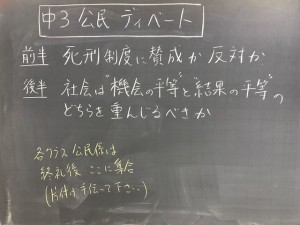 中3 公民 ディベート
前半 死刑制度に賛成か反対か
後半 社会は"機会の平等"と"結果の平等"の
どちらを重んじるべきか
各クラス公民係は
終礼後 ここに集合
(片付け手伝って下さい…)